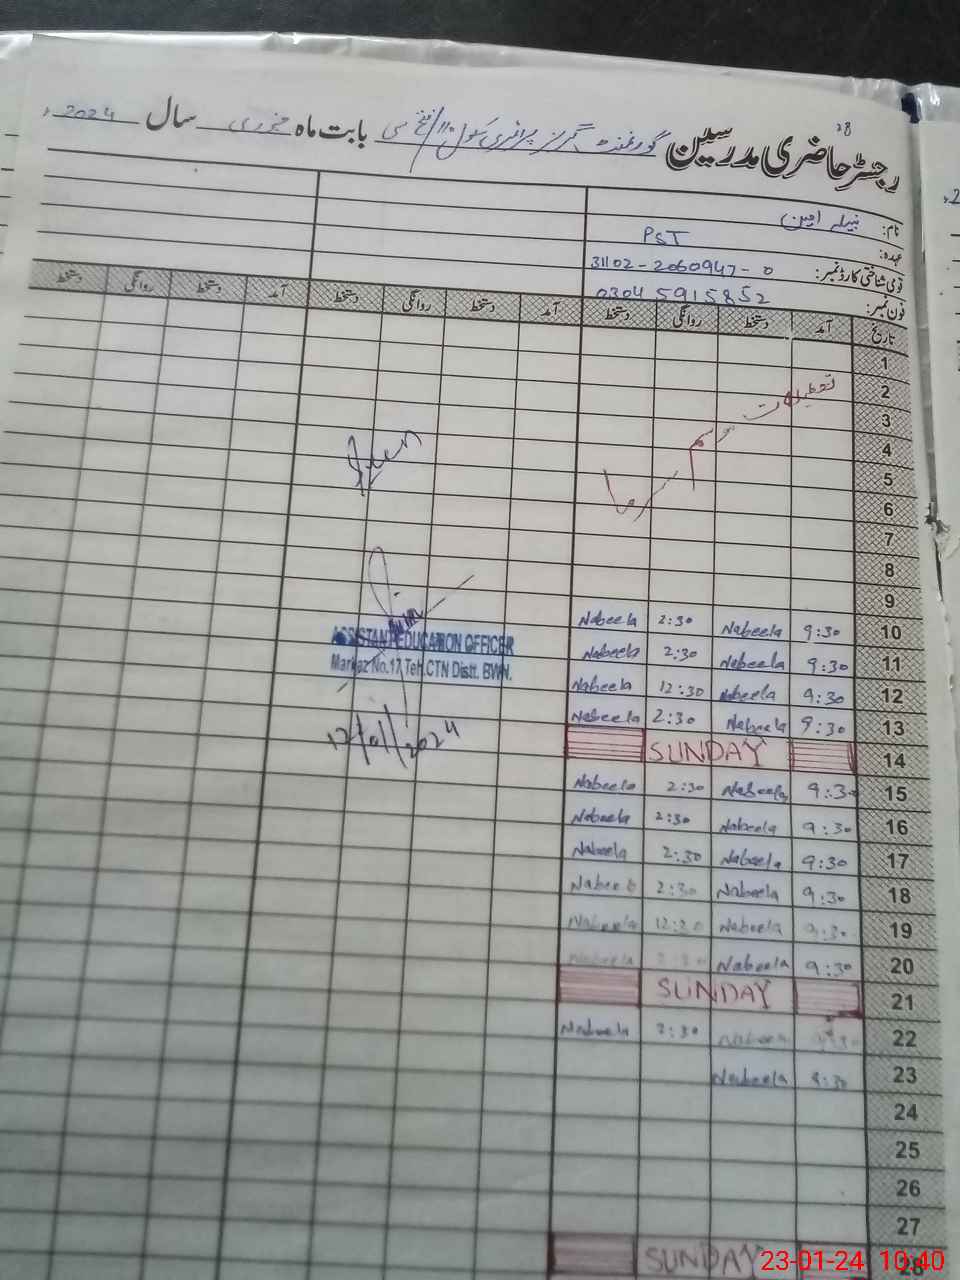 28
رجسٹر حاضری مدرسین گورنمنٹ گرلز پرائمری سکول بابت ماہ جنوری سال 2024ء
نام: نبیلہ امین
عہدہ: PST
قومی شناختی کارڈ نمبر: 31102-2060947-0
فون نمبر: 0304 5915852
تاریخ آمد دستخط روانگی دستخط آمد دستخط روانگی دستخط آمد دستخط روانگی دستخط
1
2
3
4
5
6
7
8
9
تعطیلات موسم سرما
10 9:30 Nabeela 2:30 Nabeela
11 9:30 Nabeela 2:30 Nabeela
12 9:30 Nabeela 12:30 Nabeela
13 9:30 Nabeela 2:30 Nabeela
14 SUNDAY
15 9:30 Nabeela 2:30 Nabeela
16 9:30 Nabeela 2:30 Nabeela
17 9:30 Nabeela 2:30 Nabeela
18 9:30 Nabeela 2:30 Nabeela
19 9:30 Nabeela 12:30 Nabeela
20 9:30 Nabeela 2:30 Nabeela
21 SUNDAY
22 9:30 Nabeela 2:30 Nabeela
23 Nabeela
24
25
26
27
28 SUNDAY
ASSISTANT EDUCATION OFFICER
Markaz No.17, Teh.CTN Distt. BWN.
17/01/2024
23-01-24 10:40